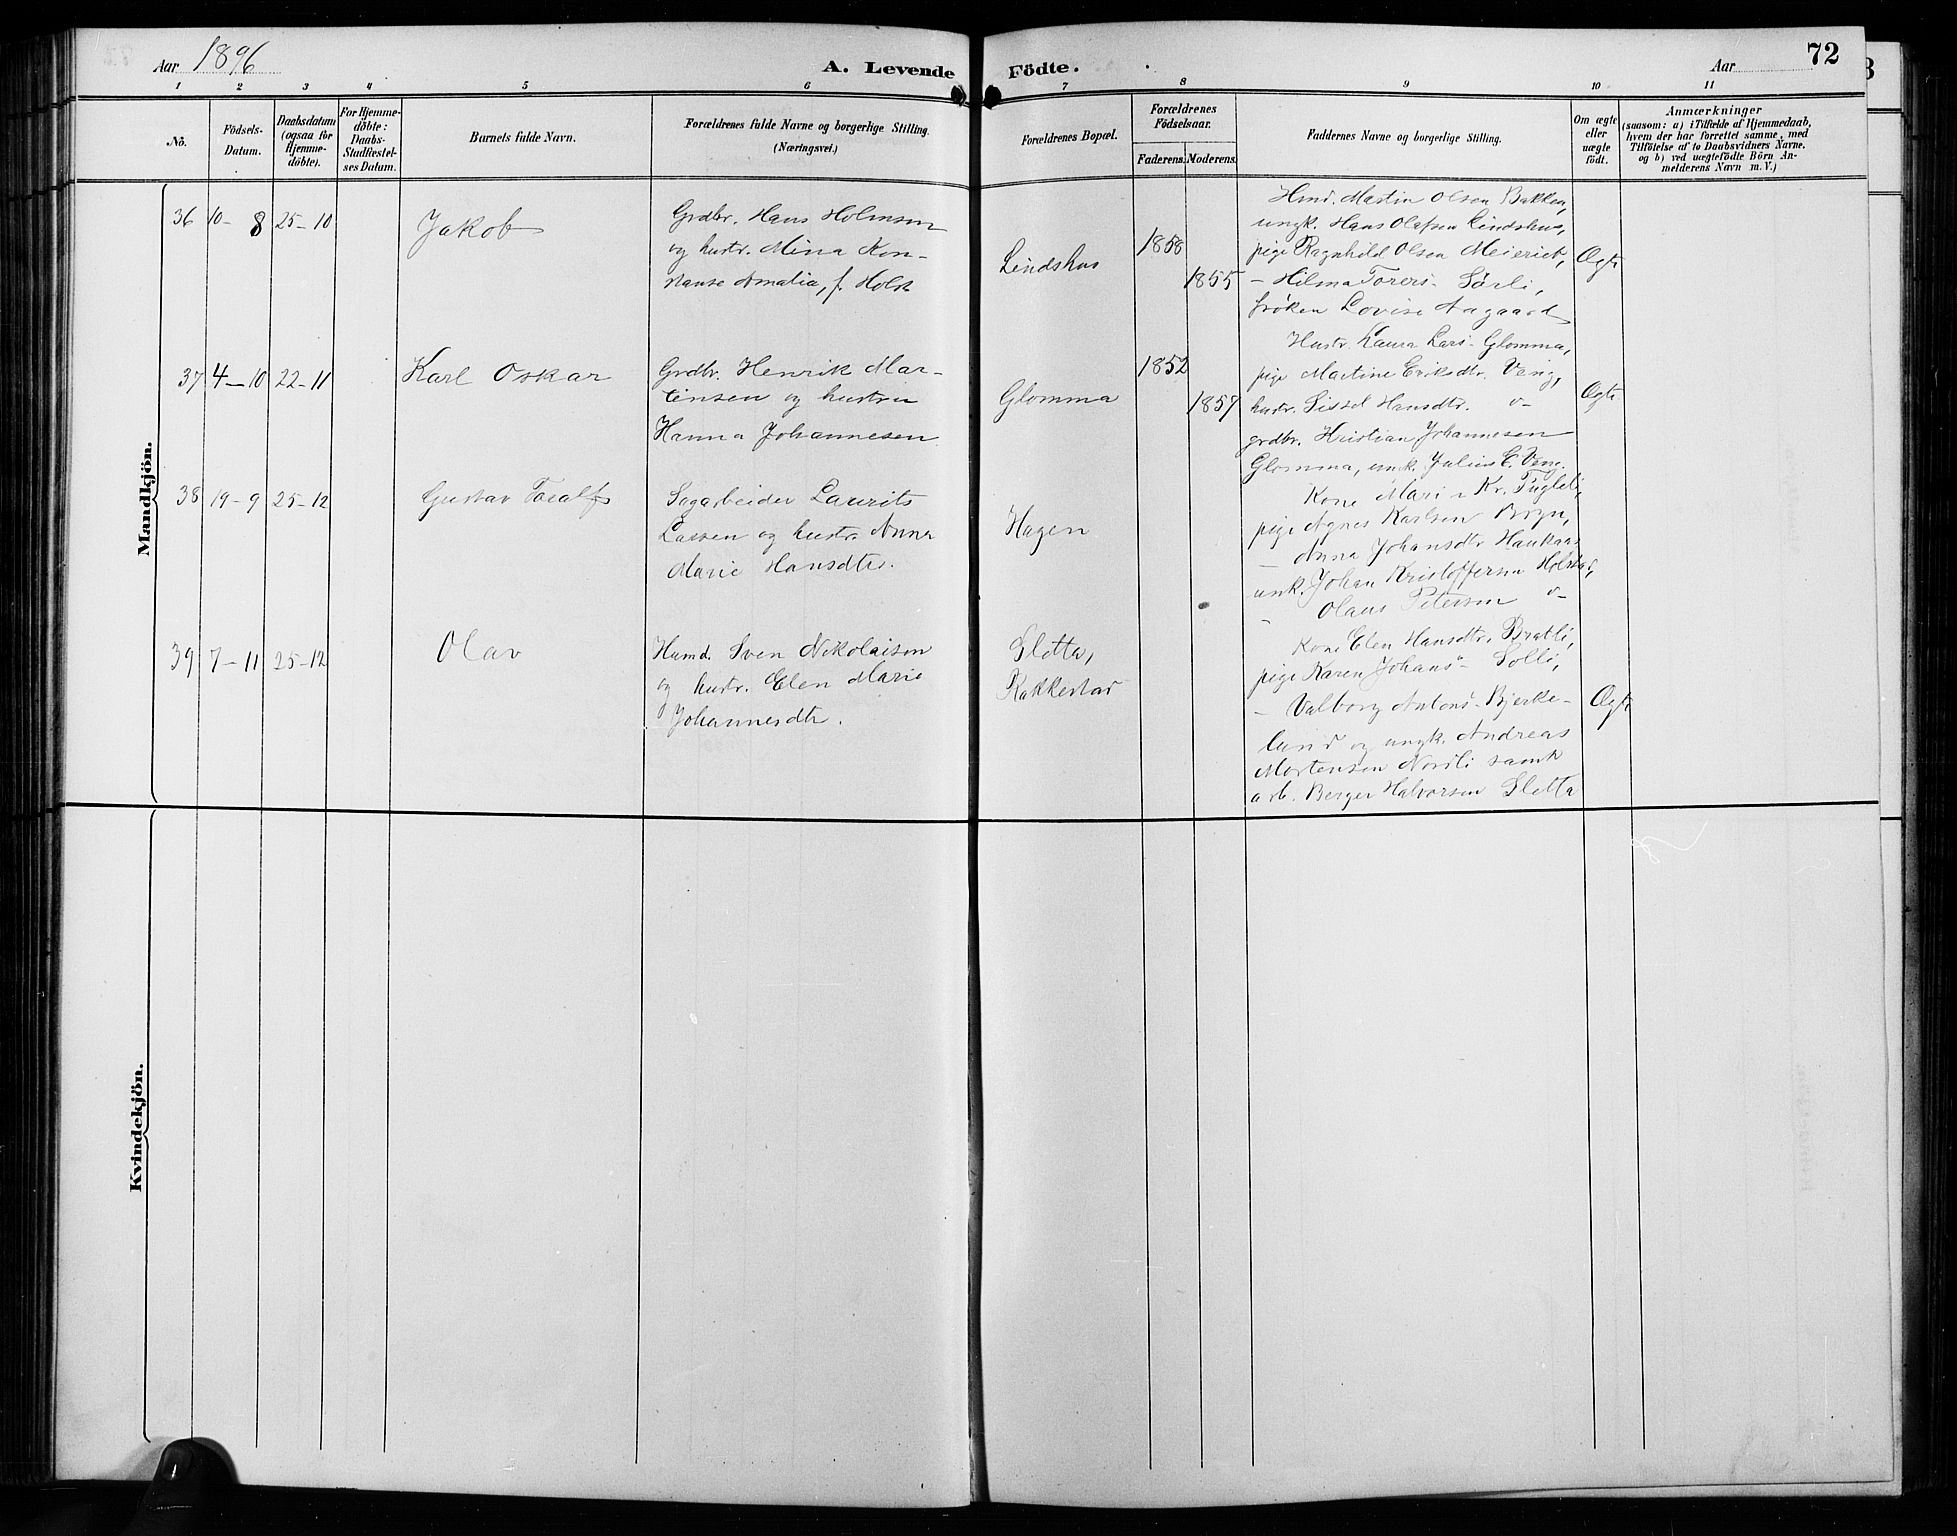 Aar 1896
A. Levende Födte.
Aar
72
1 2 3 4 5 6 7 8 9 10 11
No.
Födsels-
Datum.
Daabsdatum
(ogsaa for
Hjemme-
döbte).
For Hjemme-
döbte:
Daabs-
Stadfæstel-
ses Datum.
Barnets fulde Navn.
Forældrenes fulde Navne og borgerlige Stilling.
(Næringsvei.)
Forældrenes Bopæl.
Forældrenes
Födselsaar.
Faderens. Moderens.
Faddernes Navne og borgerlige Stilling.
Om ægte
eller
uægte
födt.
Anmærkninger
(saasom: a) i Tilfælde af Hjemmedaab,
hvem der har forrettet samme, med
Tilföielse af to Daabsvidners Navne.
og b) ved uægtefödte Börn An-
melderens Navn m. V.)
Mandkjön.
36 10-8 25-10
Jakob
Grdbr. Hans Holmsen
og hustr. Mina Kon-
stanse Amalia, f. Holst
Lindshus
1858
1855
Hmd. Martin Olsen Bakken,
ungk. Hans Olafsen Lindshus,
pige Ragnhild Olsen Meieriet,
- Hilma Torers- Sørli,
frøken Lovise Aagaard
Ægte
37 4-10 22-11
Karl Oskar
Grdbr. Henrik Mar-
tinsen og hustru
Hanna Johannesen
Glomma
1852
1857
Hustr. Laura Lars- Glomma,
pige Martine Eriksdtr. Vang,
hustr. Sissel Hansdtr. o-
grdbr. Kristian Johannesen
Glomma, unk. Julius E. Vang.
Ægte
38 19-9 25-12
Gustav Toralf
Sagarbeider Laurits
Larsen og hustr. Anne
Marie Hansdtr.
Hagen
Kone Mari Kr. Fugleli,
pige Agnes Karlsen Bryn,
- Anna Johansdtr Haukaas
unk. Johan Kristoffersen Holstad,
- Olaus Petersen o-
39 7-11 25-12
Olav
Husmd. Sven Nikolaisen
og hustr. Elen Marie
Johannesdtr.
Sletta,
Rakkestad
Kone Elen Hansdtr. Bratli,
pige Karen Johans" Solli,
- Valborg Antons- Bjerke-
lund og ungk. Andreas
Mortensen Nordli samt
arb. Berger Halvorsen Sletta
Ægte
Kvindekjön.